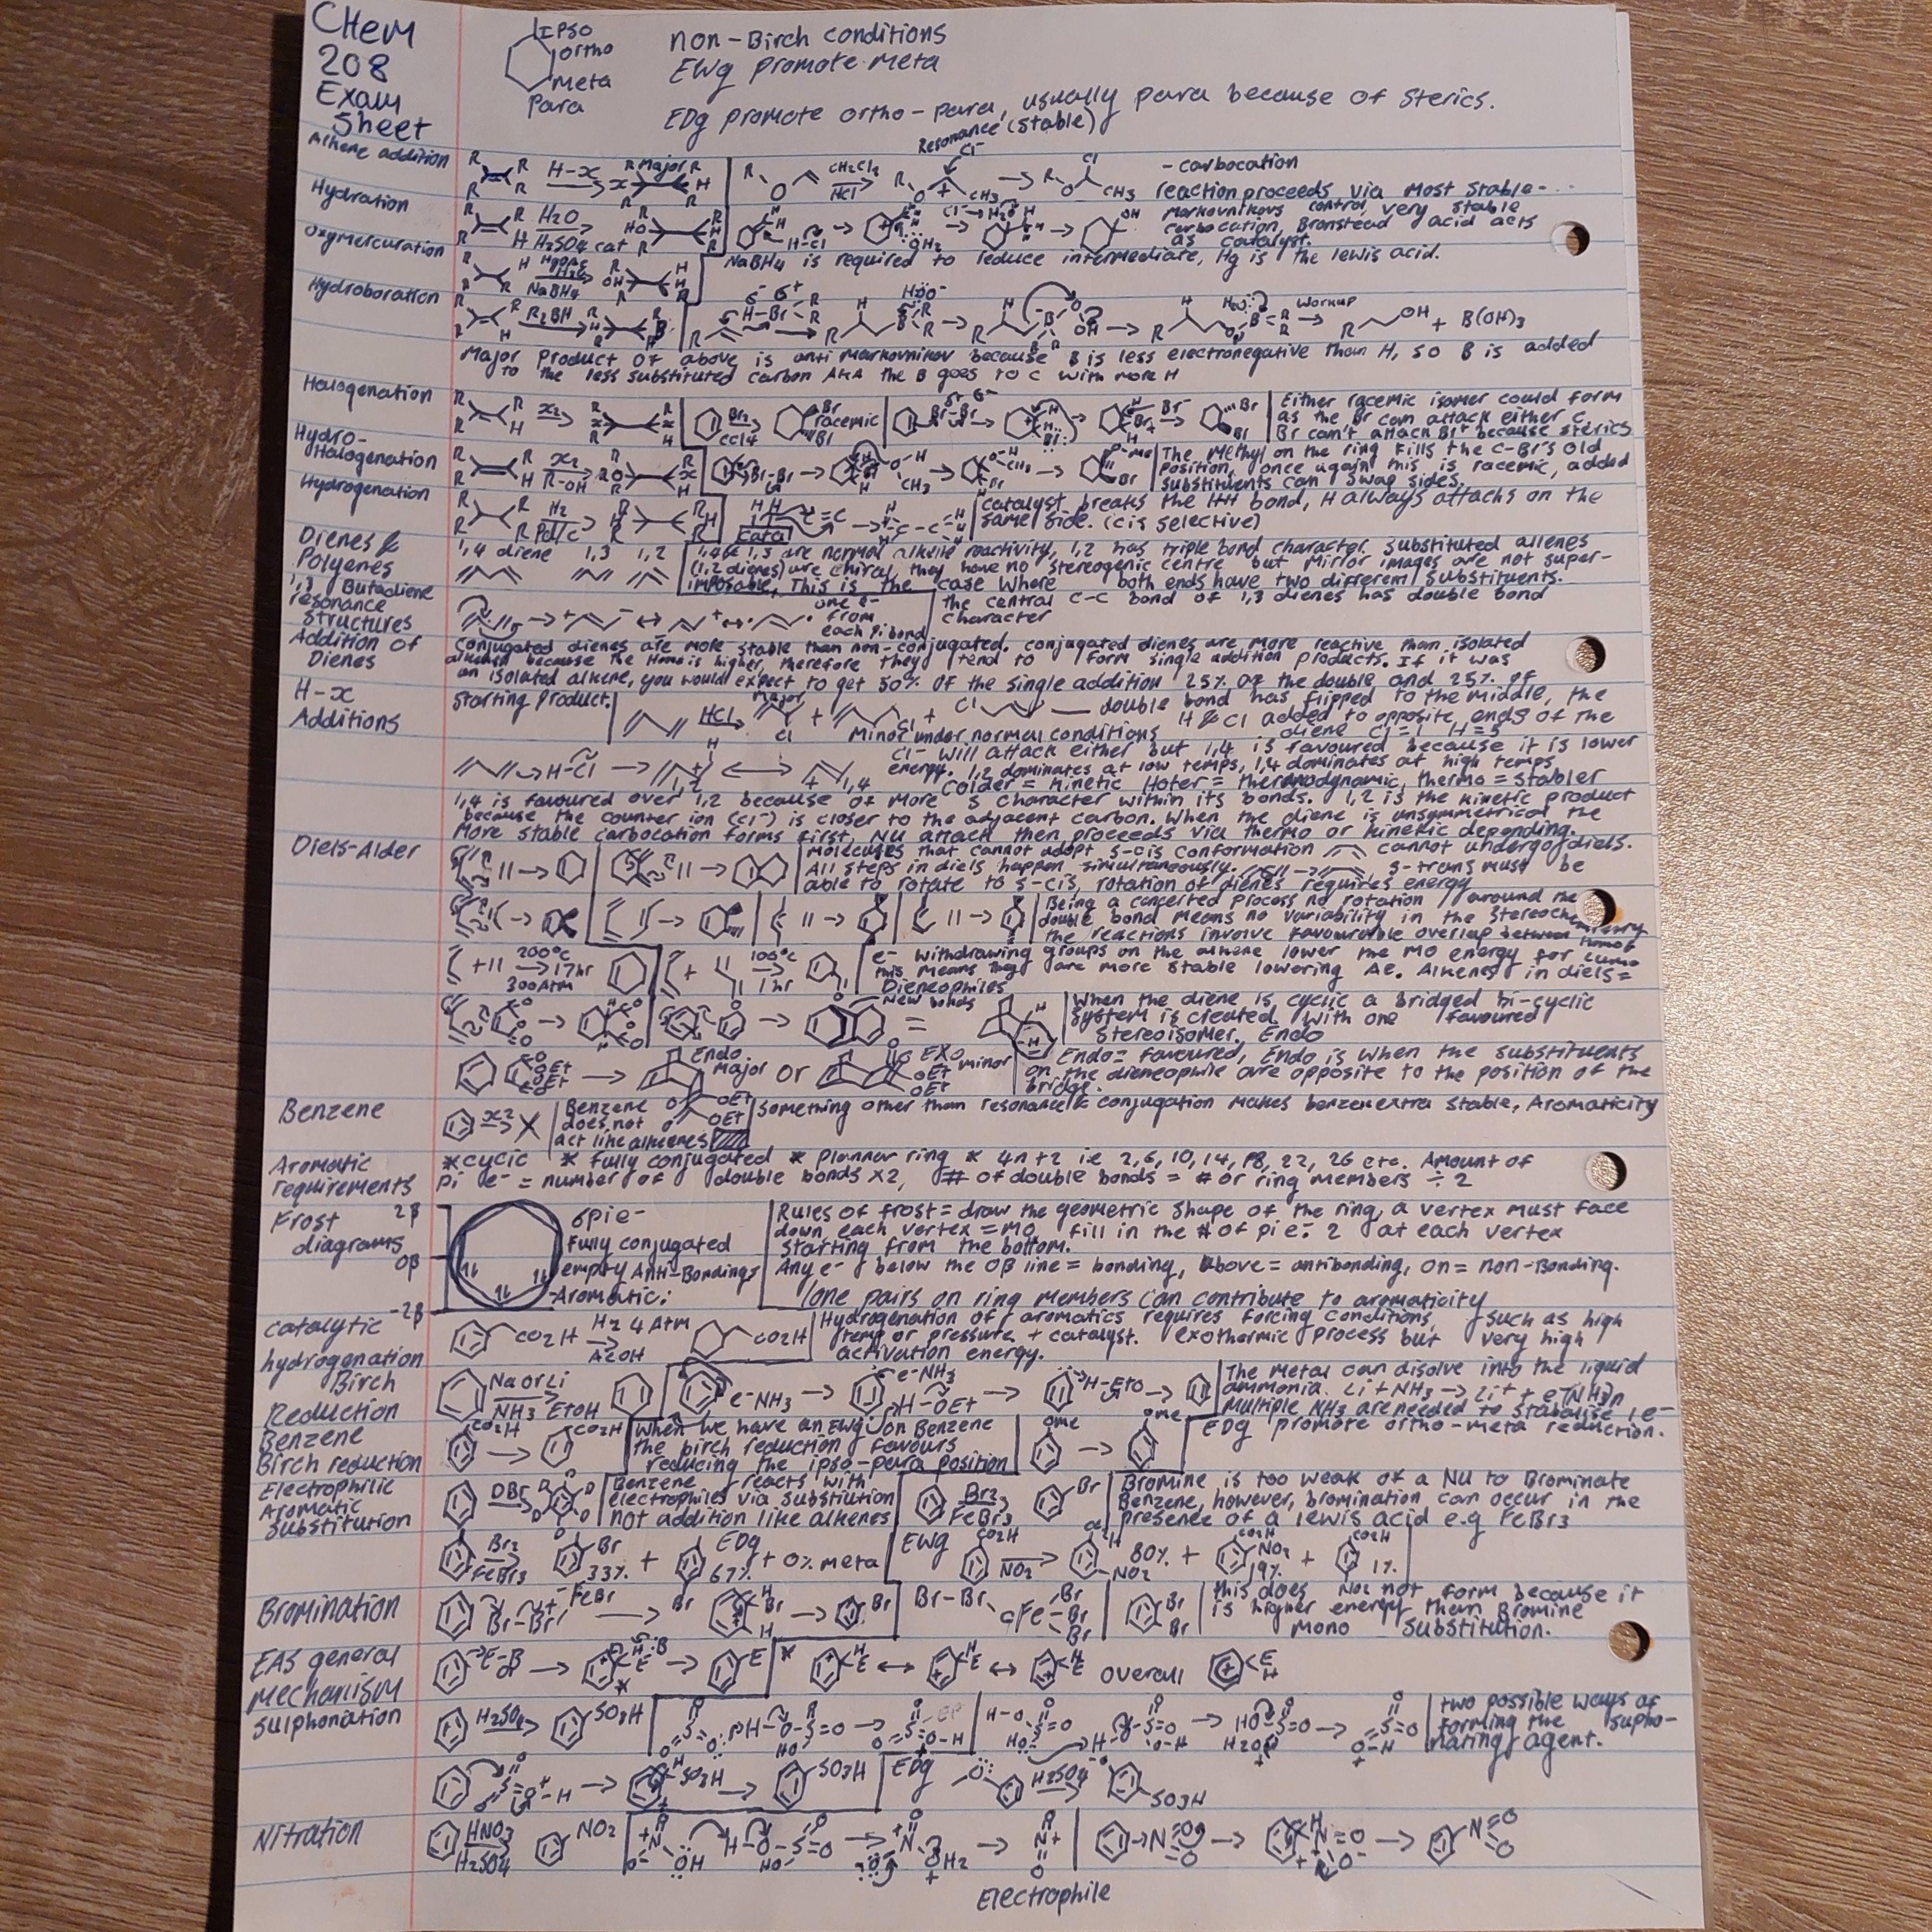 CHem
208
Exam
Sheet
IPSO
ortho
Meta
Para
non-Birch conditions
EWg promote meta
EDg promote ortho-para, usually para because of sterics.
Resonance (stable)
Alkene addition
H-x
Major
CH2Cl2
HCl
- carbocation
reaction proceeds via Most Stable-...
Hydration
H2O
H2SO4 cat
Markovnikovs control, very stable
carbocation, Bronstead acid acts
as catalyst.
Oxymercuration
NaBH4
NaBH4 is required to reduce intermediate, Hg is the lewis acid.
Hydroboration
R2BH
Workup
+ B(OH)3
Major product of above is anti markovnikov because B is less electronegative than H, so B is added
to the less substituted carbon AKA the B goes to C with more H
Halogenation
x2
Br2
CCl4
racemic
Either racemic isomer could form
as the Br can attack either C
Br can't attack Br+ because sterics
Hydro-
Halogenation
x2
R-OH
The Methyl on the ring fills the C-Br's old
position, once again this is racemic, added
substituents can swap sides.
Hydrogenation
H2
Pd/c
cata
catalyst breaks the HH bond, H always attachs on the
same side. (cis selective)
Dienes &
Polyenes
1,4 diene 1,3 1,2
1,4 & 1,3 are normal alkene reactivity, 1,2 has triple bond character. substituted allenes
(1,2 dienes) are chiral, they have no stereogenic centre but Mirror images are not super-
imposable, This is the case Where both ends have two different substituents.
1,3 Butadiene
resonance
Structures
one e-
from
each Pi bond
the central C-C bond of 1,3 dienes has double bond
character
Addition of
Dienes
Conjugated dienes are more stable than non-conjugated. conjugated dienes are more reactive than isolated
alkenes because the Homo is higher, therefore they tend to form single addition products. If it was
an isolated alkene, you would expect to get 50% of the single addition 25% of the double and 25% of
Starting Product.
H-x
Additions
HCl
Major
double bond has flipped to the middle, the
H & Cl added to opposite ends of the
diene
Minor under normal conditions
Cl- will attack either but 1,4 is favoured because it is lower
energy. 1,2 dominates at low temps, 1,4 dominates at high temps
Colder = Kinetic Hoter = thermodynamic, thermo = stabler
1,4 is favoured over 1,2 because of more s character within its bonds. 1,2 is the kinetic product
because the counter ion (Cl-) is closer to the adjacent carbon. When the diene is unsymmetrical the
More stable carbocation forms first, NU attack then proceeds via thermo or kinetic depending.
Diels-Alder
Molecules that cannot adopt s-cis conformation cannot undergo diels.
All steps in diels happen simultaneously. s-trans must be
able to rotate to s-cis, rotation of dienes requires energy
Being a concerted process no rotation around the
double bond means no variability in the Stereochemistry
the reactions involve favourable overlap between Homo &
200°c
17hr
300Atm
100°c
1 hr
e- withdrawing groups on the alkene lower the MO energy for Lumo
this means they are more stable lowering Ae. Alkenes in diels =
Dieneophiles
New bonds
When the diene is cyclic a bridged bi-cyclic
system is created with one favoured
Stereoisomer. Endo
Endo
Major
or
EXo
minor
Endo = favoured, Endo is when the substituents
on the dieneophile are opposite to the position of the
bridge.
Benzene
x2
Benzene
does not
act like alkenes
Something other than resonance & conjugation makes benzene extra stable, Aromaticity
Aromatic
requirements
*cyclic * fully conjugated * plannar ring * 4n+2 ie 2,6,10,14,18,22,26 etc. Amount of
Pi e- = number of double bonds x2, # of double bonds = # or ring members ÷ 2
Frost
diagrams
2β
0β
-2β
6pie-
fully conjugated
empty Anti-Bondings
Aromatic:
Rules of frost = draw the geometric shape of the ring, a vertex must face
down each vertex = MO fill in the # of pie: 2 at each vertex
starting from the bottom.
Any e- below the 0β line = bonding, above = antibonding, on = non-Bonding.
lone pairs on ring members can contribute to aromaticity
catalytic
hydrogenation
CO2H
H2 4 Atm
AcOH
CO2H
Hydrogenation of aromatics requires forcing conditions, such as high
temp or pressure + catalyst. exothermic process but very high
activation energy.
Birch
Reduction
Na or Li
NH3 EtOH
e-NH3
e-NH3
H-OEt
H-EtO
The Metal can disolve into the liquid
ammonia. Li + NH3 → Li+ + e-(NH3)n
Multiple NH3 are needed to stabalise 1 e-
Benzene
Birch reduction
CO2H
CO2H
When we have an EWg on Benzene
the birch reduction favours
reducing the ipso-para position
OMe
OMe
EDg promote ortho-meta reduction.
Electrophilic
Aromatic
Substitution
DBr
Benzene reacts with
electrophiles via substitution
not addition like alkenes
Br2
FeBr3
Br
Bromine is too weak of a NU to Brominate
Benzene, however, bromination can occur in the
presence of a lewis acid e.g FeBr3
Br2
FeBr3
Br
33%
+
EDg
67%
+ 0% meta
EWg
CO2H
NO2
80%
NO2
+
CO2H
NO2
19%
+
CO2H
1%
NO2
Bromination
Br-Br
FeBr
Br
Br
Br
Br-Br
Fe-Br
Br
Br
this does not form because it
is higher energy than Bromine
mono substitution.
EAS general
mechanism
E-B
E
overall
Sulphonation
H2SO4
SO3H
two possible ways of
forming the supho-
nating agent.
SO3H
SO3H
EDg
H2SO4
SO3H
Nitration
HNO3
H2SO4
NO2
Electrophile